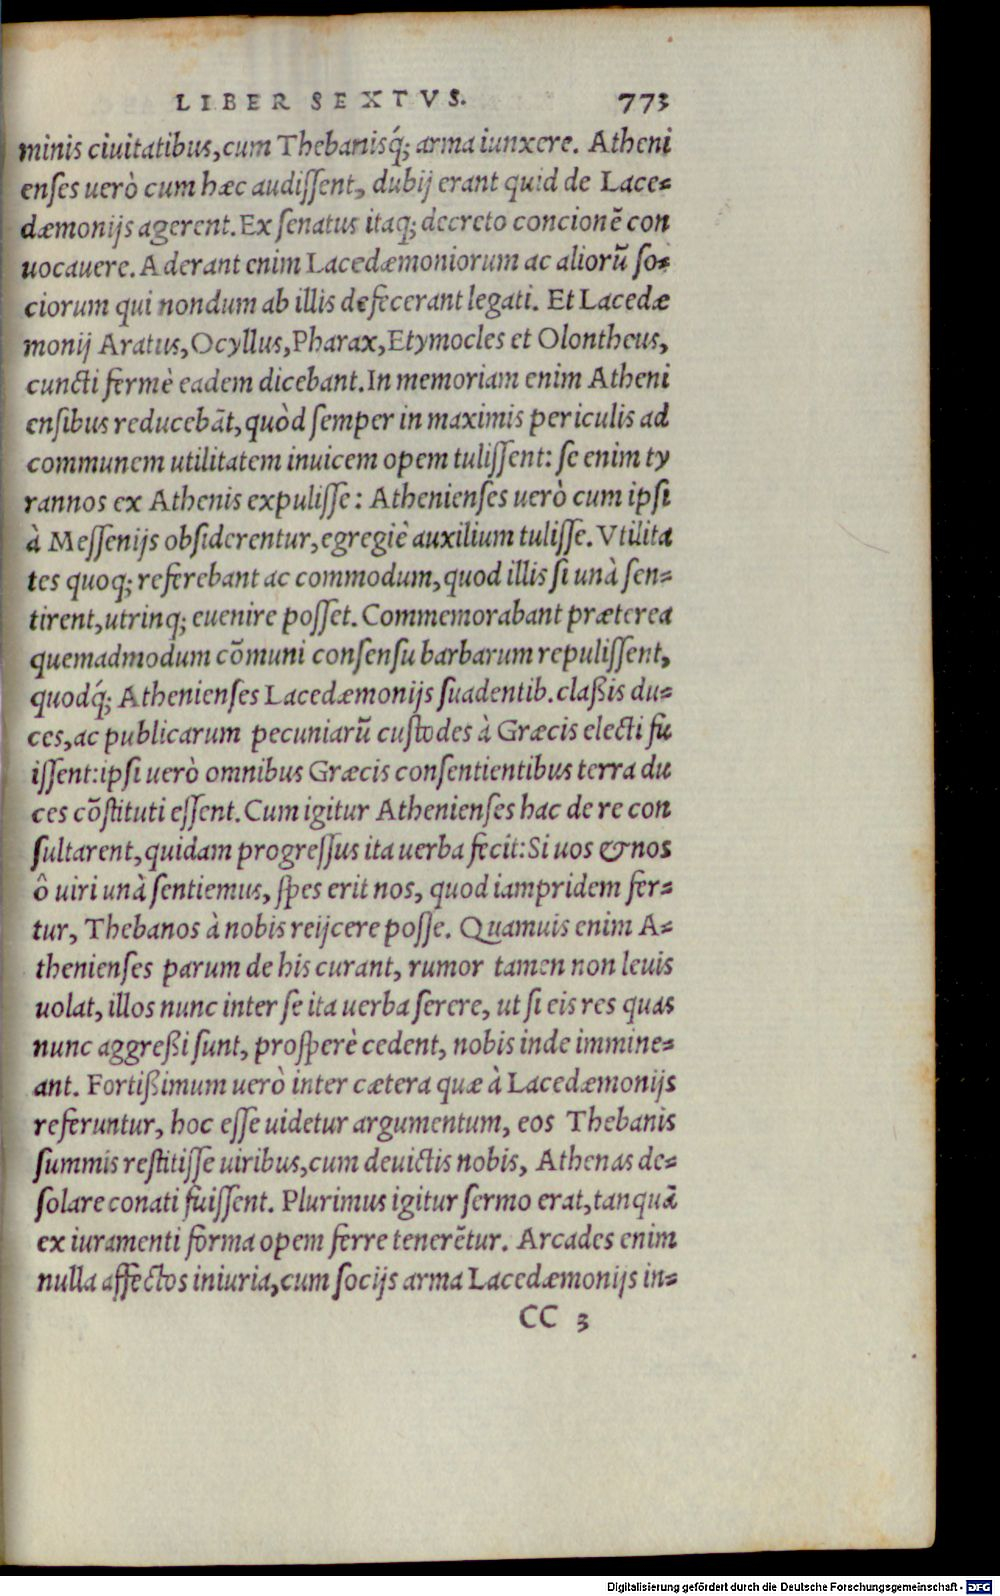 LIBER SEXTVS. 773
minis ciuitatibus, cum Thebanisq́; arma iunxere. Atheni
enses uerò cum hæc audissent, dubij erant quid de Lace-
dæmonijs agerent. Ex senatus itaq; decreto concionē con
uocauere. Aderant enim Lacedæmoniorum ac aliorū so-
ciorum qui nondum ab illis defecerant legati. Et Lacedæ
monij Aratus, Ocyllus, Pharax, Etymocles et Olontheus,
cuncti fermè eadem dicebant. In memoriam enim Atheni
ensibus reducebāt, quòd semper in maximis periculis ad
communem utilitatem inuicem opem tulissent: se enim ty
rannos ex Athenis expulisse: Athenienses uerò cum ipsi
à Messenijs obsiderentur, egregiè auxilium tulisse. Vtilita
tes quoq; referebant ac commodum, quod illis si unà sen-
tirent, utrinq; euenire posset. Commemorabant præterea
quemadmodum cōmuni consensu barbarum repulissent,
quodq́; Athenienses Lacedæmonijs suadentib. claßis du-
ces, ac publicarum pecuniarū custodes à Græcis electi fu
issent: ipsi uerò omnibus Græcis consentientibus terra du
ces cōstituti essent. Cum igitur Athenienses hac de re con
sultarent, quidam progressus ita uerba fecit: Si uos & nos
ô uiri unà sentiemus, spes erit nos, quod iampridem fer-
tur, Thebanos à nobis reijcere posse. Quamuis enim A-
thenienses parum de his curant, rumor tamen non leuis
uolat, illos nunc inter se ita uerba serere, ut si eis res quas
nunc aggreßi sunt, prosperè cedent, nobis inde immine-
ant. Fortißimum uerò inter cætera quæ à Lacedæmonijs
referuntur, hoc esse uidetur argumentum, eos Thebanis
summis restitisse uiribus, cum deuictis nobis, Athenas de-
solare conati fuissent. Plurimus igitur sermo erat, tanquā
ex iuramenti forma opem ferre tenerētur. Arcades enim
nulla affectos iniuria, cum socijs arma Lacedæmonijs in-
CC 3
Digitalisierung gefördert durch die Deutsche Forschungsgemeinschaft - DFG